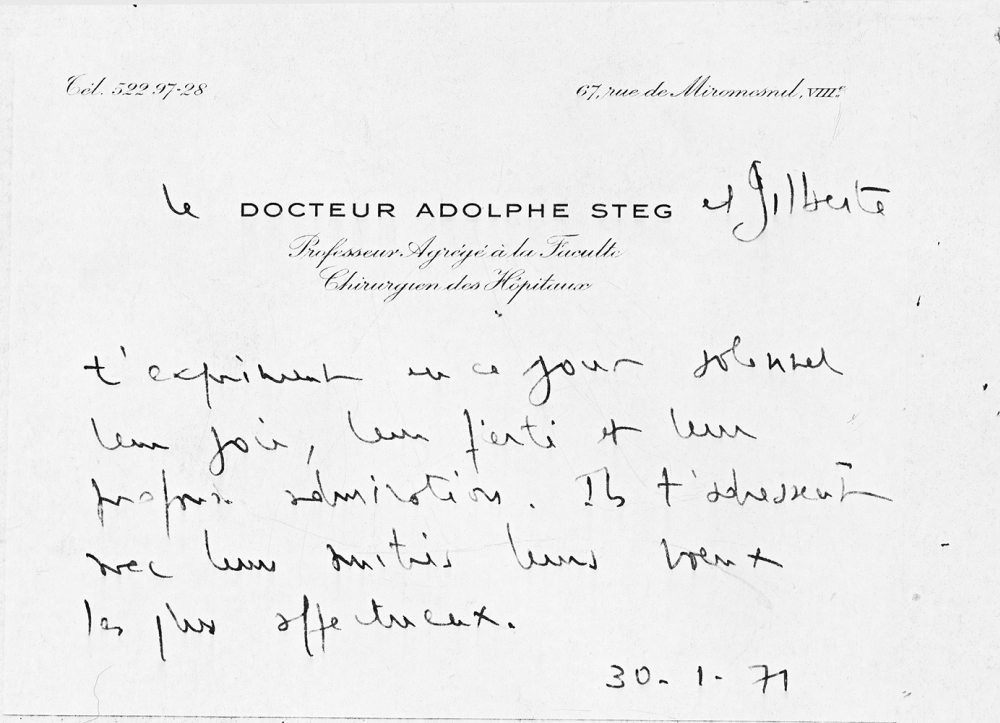 Tél. 522 97-28
67, rue de Miromesnil, VIIIe
le DOCTEUR ADOLPHE STEG et Gilberte
Professeur Agrégé à la Faculté
Chirurgien des Hôpitaux
t'expriment en ce jour solennel
leur joie, leur fierté et leur
profonde admiration. Ils t'adressent
avec leurs amitiés leurs voeux
les plus affectueux.
30-1-71